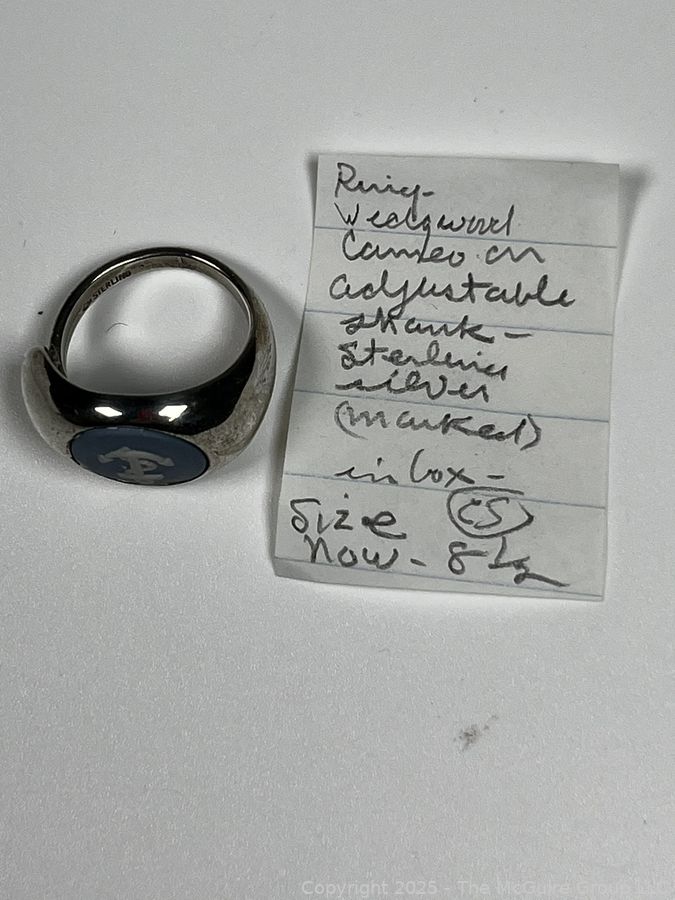 STERLING
Ring-
Wedgwood
Cameo on
adjustable
shank-
Sterling
silver
(marked)
in box-
Size CS
Now- 8 1/2
Copyright 2025 - The McGuire Group LLC